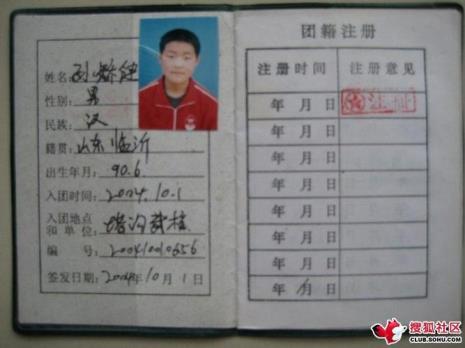 姓名:
性别: 男
民族: 汉
籍贯: 山东临沂
出生年月: 90.6.
入团时间: 2004.10.1
入团地点
和单位:
编 号: 20041010656
签发日期: 2004年10月1日
团籍注册
注册时间 注册意见
年 月 日
年 月 日
年 月 日
年 月 日
年 月 日
年 月 日
年 月 日
年 月 日
搜狐社区
CLUB.SOHU.COM